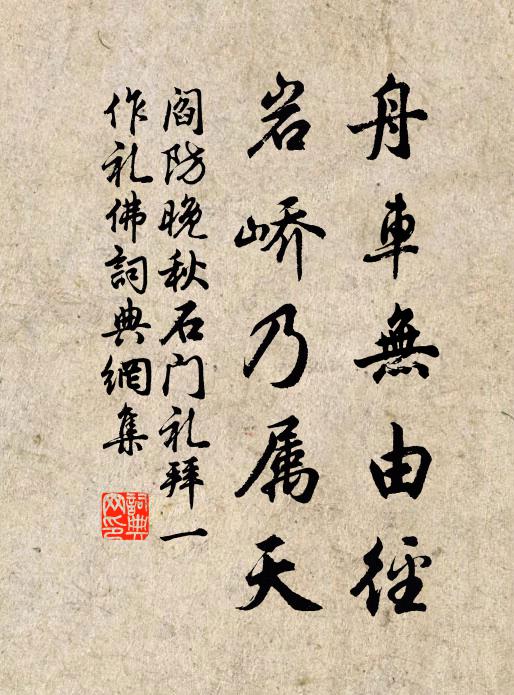 舟車無由徑
岩峤乃属天
阎防晚秋石门礼拜一
作礼佛詞典網集
詞典网印